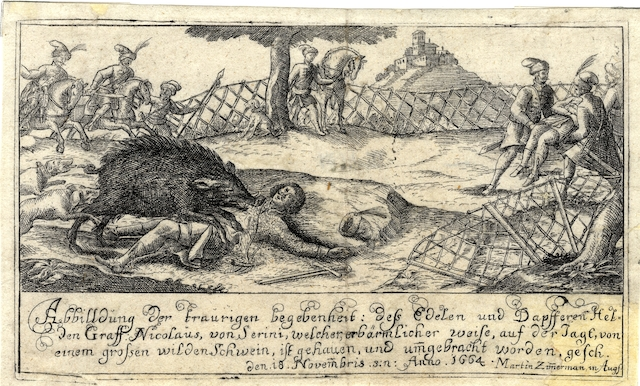 Abbilldüng Der traurigen begebenheit: deß Edelen und Dapfferen Hel-
den Graff Nicolaüs, von Serini, welcher, erbärmlicher weise, auf der Jagt, von
einem großen wilden Schwein, ist gehauen, und umgebracht worden, gesch.
den. 18. Novembris. s: n: Anno. 1664. Martin Zimerman, in Augs.